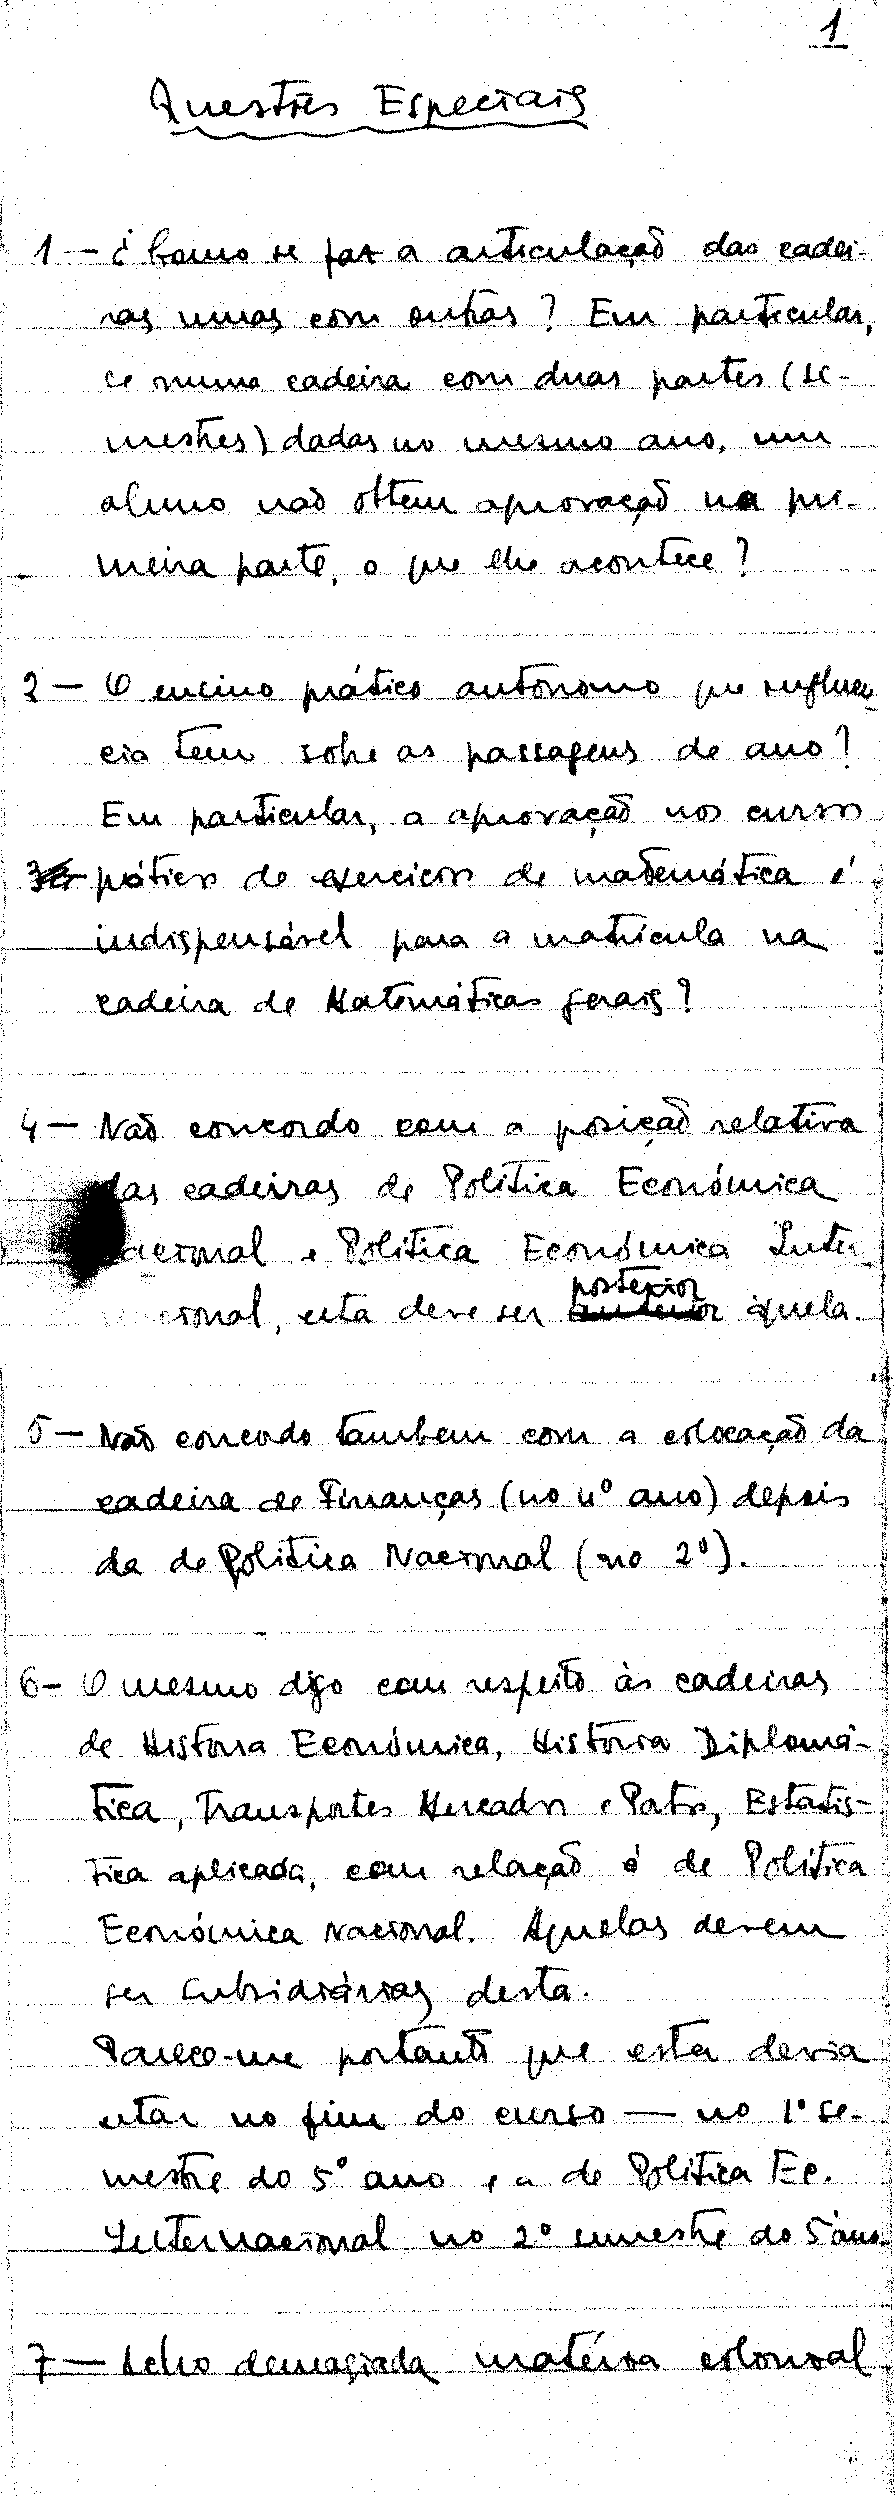 1
Questões Especiais
1 — ¿ Como se faz a articulação das cadei-
ras umas com outras? Em particular,
se numa cadeira com duas partes (se-
mestres) dadas no mesmo ano, um
aluno não obtem aprovação na pri-
meira parte, o que lhe acontece?
2 — O ensino prático autónomo que influen-
cia tem sobre as passagens de ano?
Em particular, a aprovação nos cursos
práticos de exercicios de matemática é
indispensável para a matricula na
cadeira de Matemáticas gerais?
4 — Não concordo com a posição relativa
das cadeiras de Politica Económica
Nacional e Politica Económica Inter-
nacional, esta deve ser posterior àquela.
5 — Não concordo tambem com a colocação da
cadeira de Finanças (no 4º ano) depois
da de Politica Nacional (no 2º).
6 - O mesmo digo com respeito às cadeiras
de Historia Económica, Historia Diplomá-
tica, Transportes Mercados e Portos, Estatis-
tica aplicada, com relação á de Politica
Económica Nacional. Aquelas devem
ser subsidiárias desta.
Parece-me portanto que esta devia
estar no fim do curso — no 1º se-
mestre do 5º ano e a de Politica Ec.
Internacional no 2º semestre do 5º ano.
7 — Acho demasiada matéria colonial